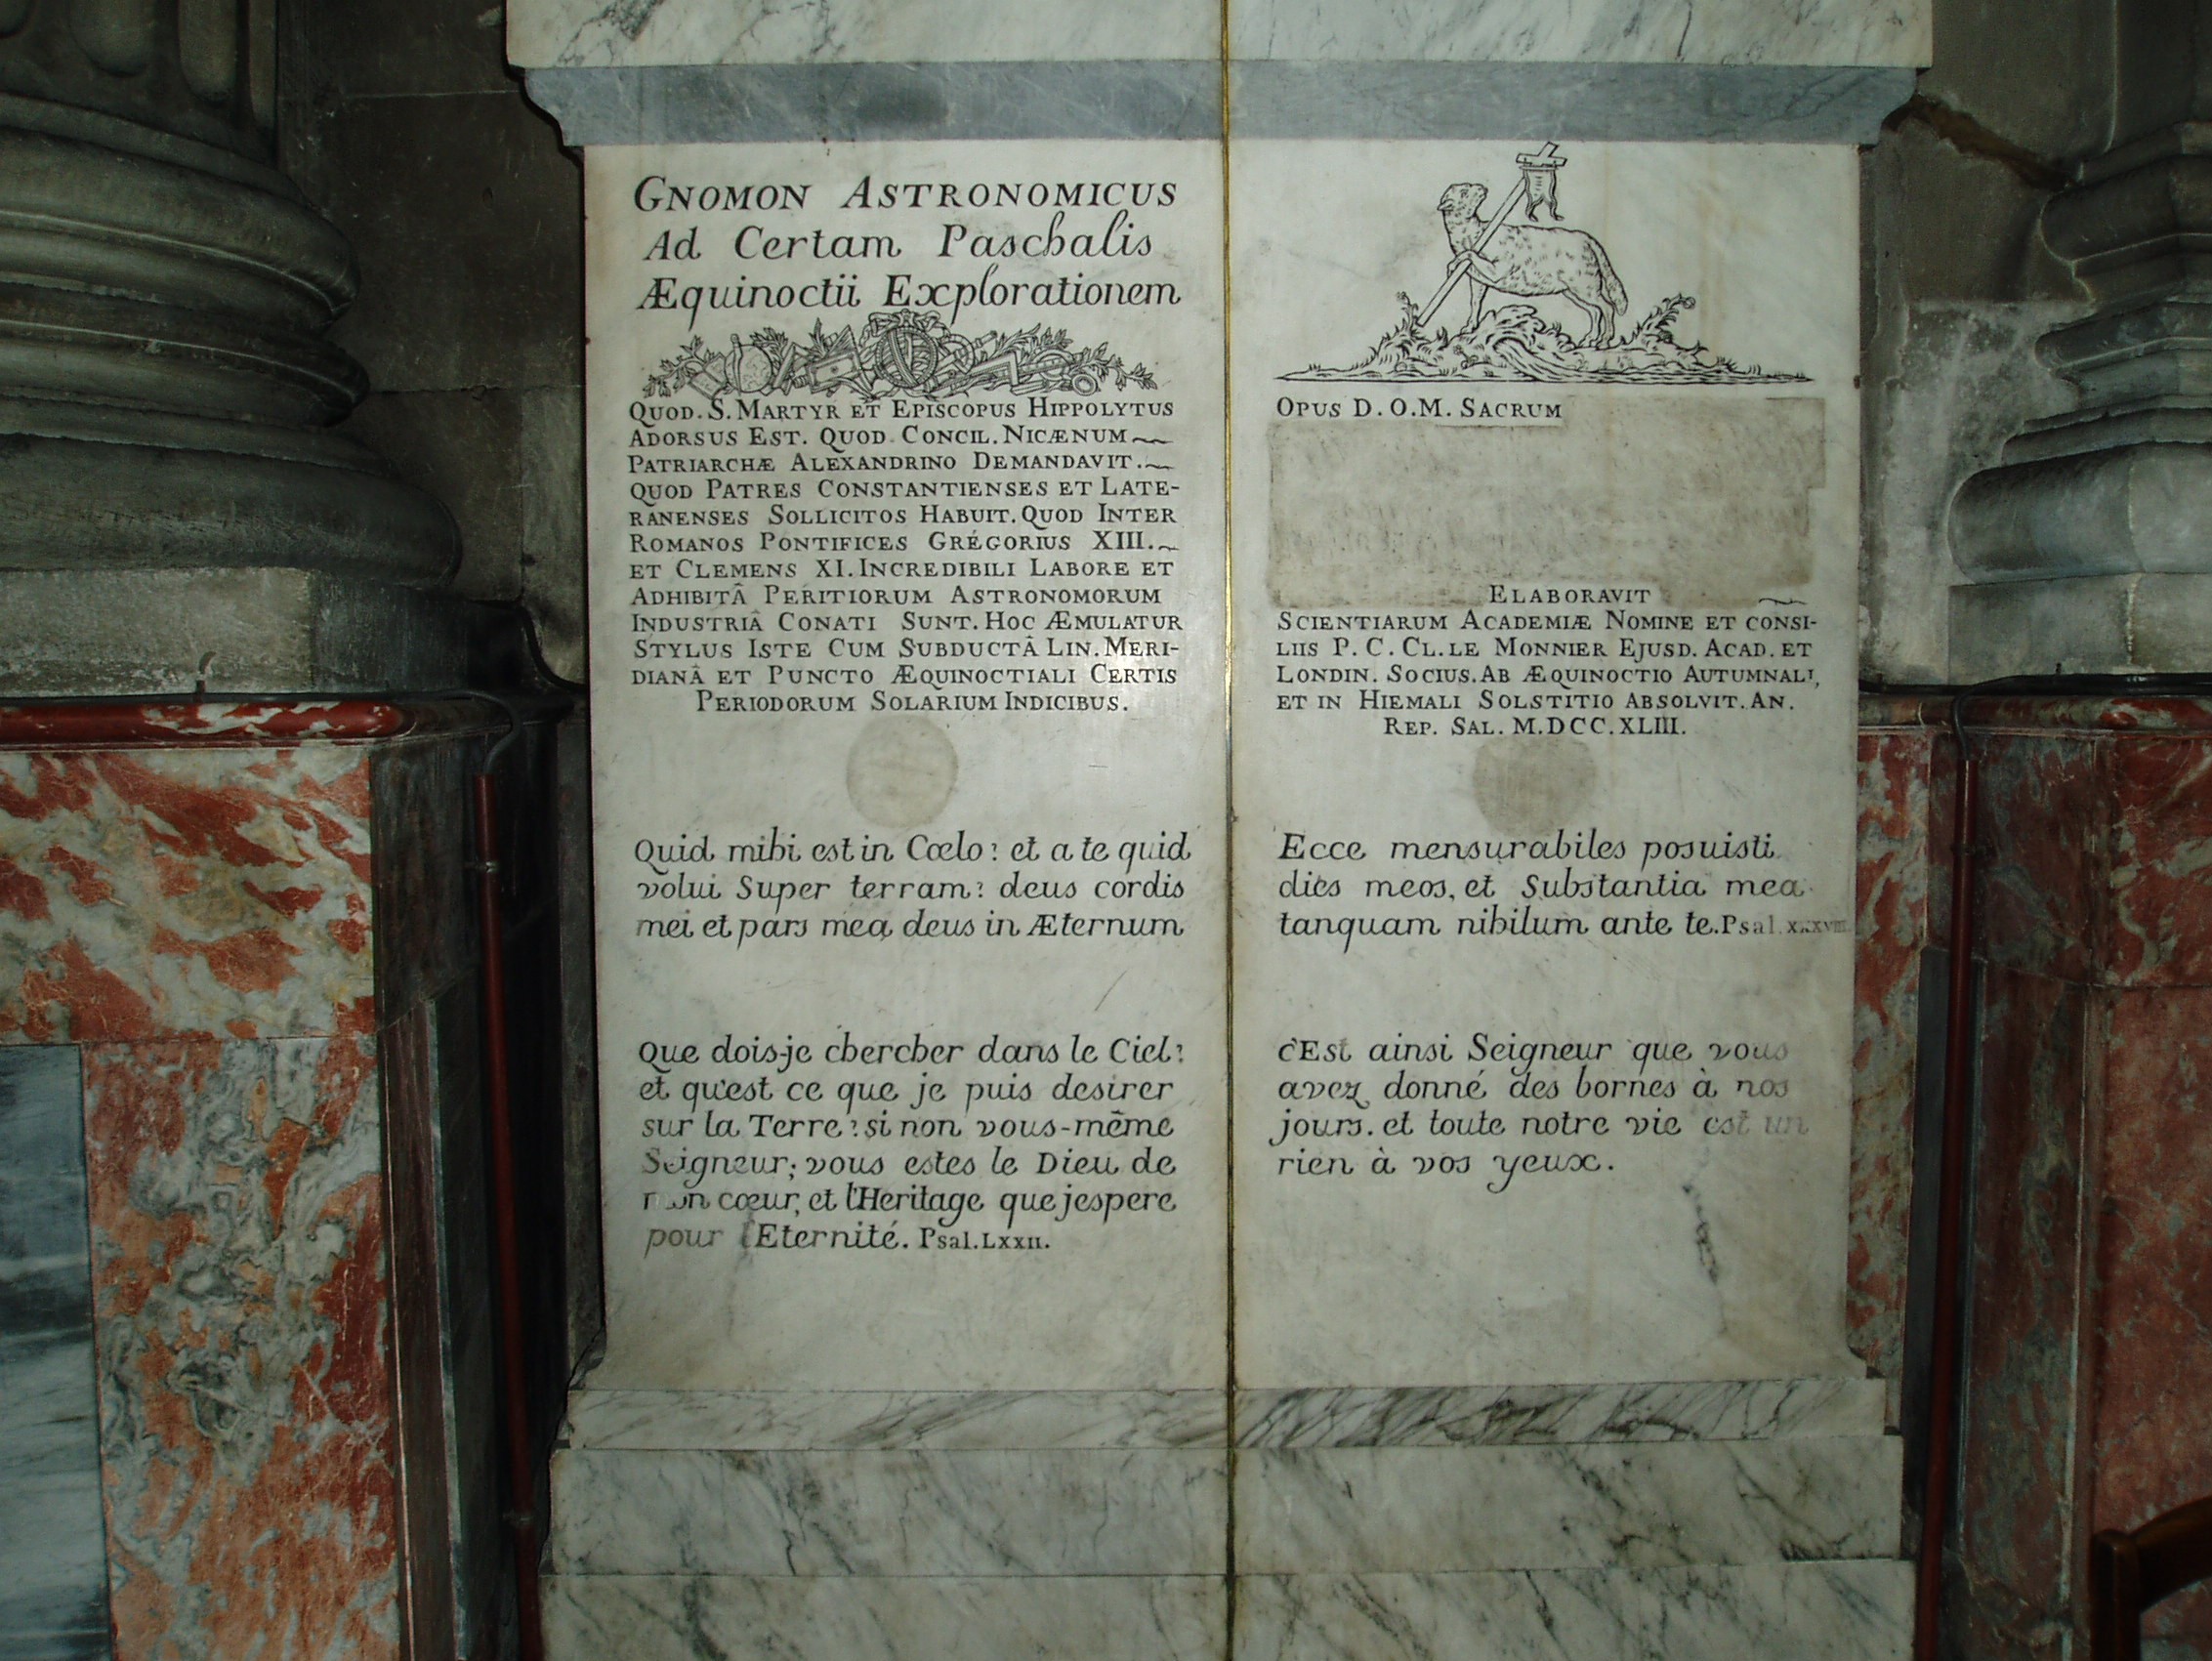 GNOMON ASTRONOMICUS
Ad Certam Paschalis
Æquinoctii Explorationem
QUOD. S. MARTYR ET EPISCOPUS HIPPOLYTUS
ADORSUS EST. QUOD CONCIL. NICÆNUM
PATRIARCHÆ ALEXANDRINO DEMANDAVIT.
QUOD PATRES CONSTANTIENSES ET LATE-
RANENSES SOLLICITOS HABUIT. QUOD INTER
ROMANOS PONTIFICES GRÉGORIUS XIII.
ET CLEMENS XI. INCREDIBILI LABORE ET
ADHIBITÂ PERITIORUM ASTRONOMORUM
INDUSTRIÂ CONATI SUNT. HOC ÆMULATUR
STYLUS ISTE CUM SUBDUCTÂ LIN. MERI-
DIANÂ ET PUNCTO ÆQUINOCTIALI CERTIS
PERIODORUM SOLARIUM INDICIBUS.
Quid mihi est in Cœlo? et a te quid
volui Super terram? deus cordis
mei et pars mea deus in Æternum
Que dois-je chercher dans le Ciel?
et qu'est ce que je puis desirer
sur la Terre? si non vous-même
Seigneur; vous estes le Dieu de
mon cœur, et l'Heritage que jespere
pour l'Eternité. Psal. LXXII.
OPUS D. O. M. SACRUM
ELABORAVIT
SCIENTIARUM ACADEMIÆ NOMINE ET CONSI-
LIIS P. C. CL. LE MONNIER EJUSD. ACAD. ET
LONDIN. SOCIUS. AB ÆQUINOCTIO AUTUMNALI,
ET IN HIEMALI SOLSTITIO ABSOLVIT. AN.
REP. SAL. M.DCC.XLIII.
Ecce mensurabiles posuisti
dies meos, et Substantia mea
tanquam nihilum ante te. Psal. xxxviii
c'Est ainsi Seigneur que vous
avez donné des bornes à nos
jours. et toute notre vie est un
rien à vos yeux.